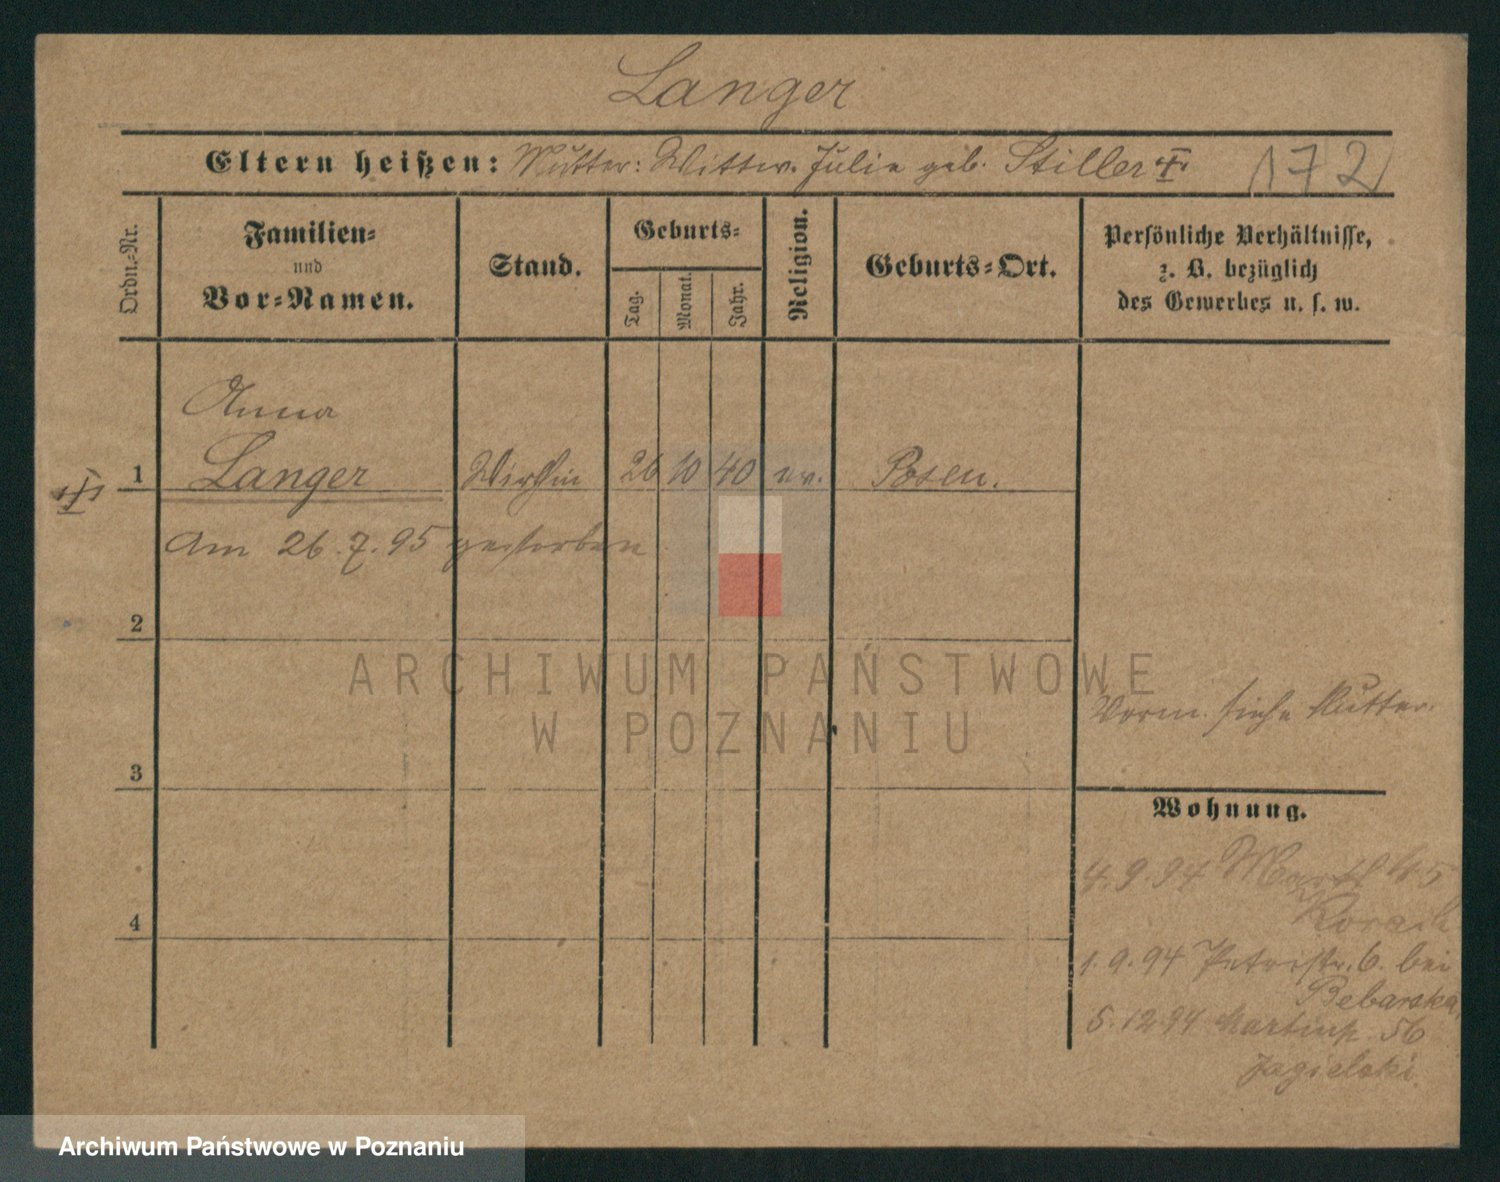 Langer
Eltern heißen: Mutter: Wittw. Julie geb. Stiller 172
Ordn.-Nr.
Familien-
und
Vor-Namen.
Stand.
Geburts-
Tag.
Monat.
Jahr.
Religion.
Geburts-Ort.
Persönliche Verhältnisse,
z. B. bezüglich
des Gewerbes u. s. w.
Anna
1 Langer Wirthin 26 10 40 ev. Posen.
Am 26.7.95 gestorben
2
ARCHIWUM PAŃSTWOWE
W POZNANIU
Vorm. siehe Mutter.
3
Wohnung.
4.9.94 45
4
1.9.94 Petristr. 6. bei
Bebarska
5.12.94 Martinstr. 56
Jagielski
Archiwum Państwowe w Poznaniu